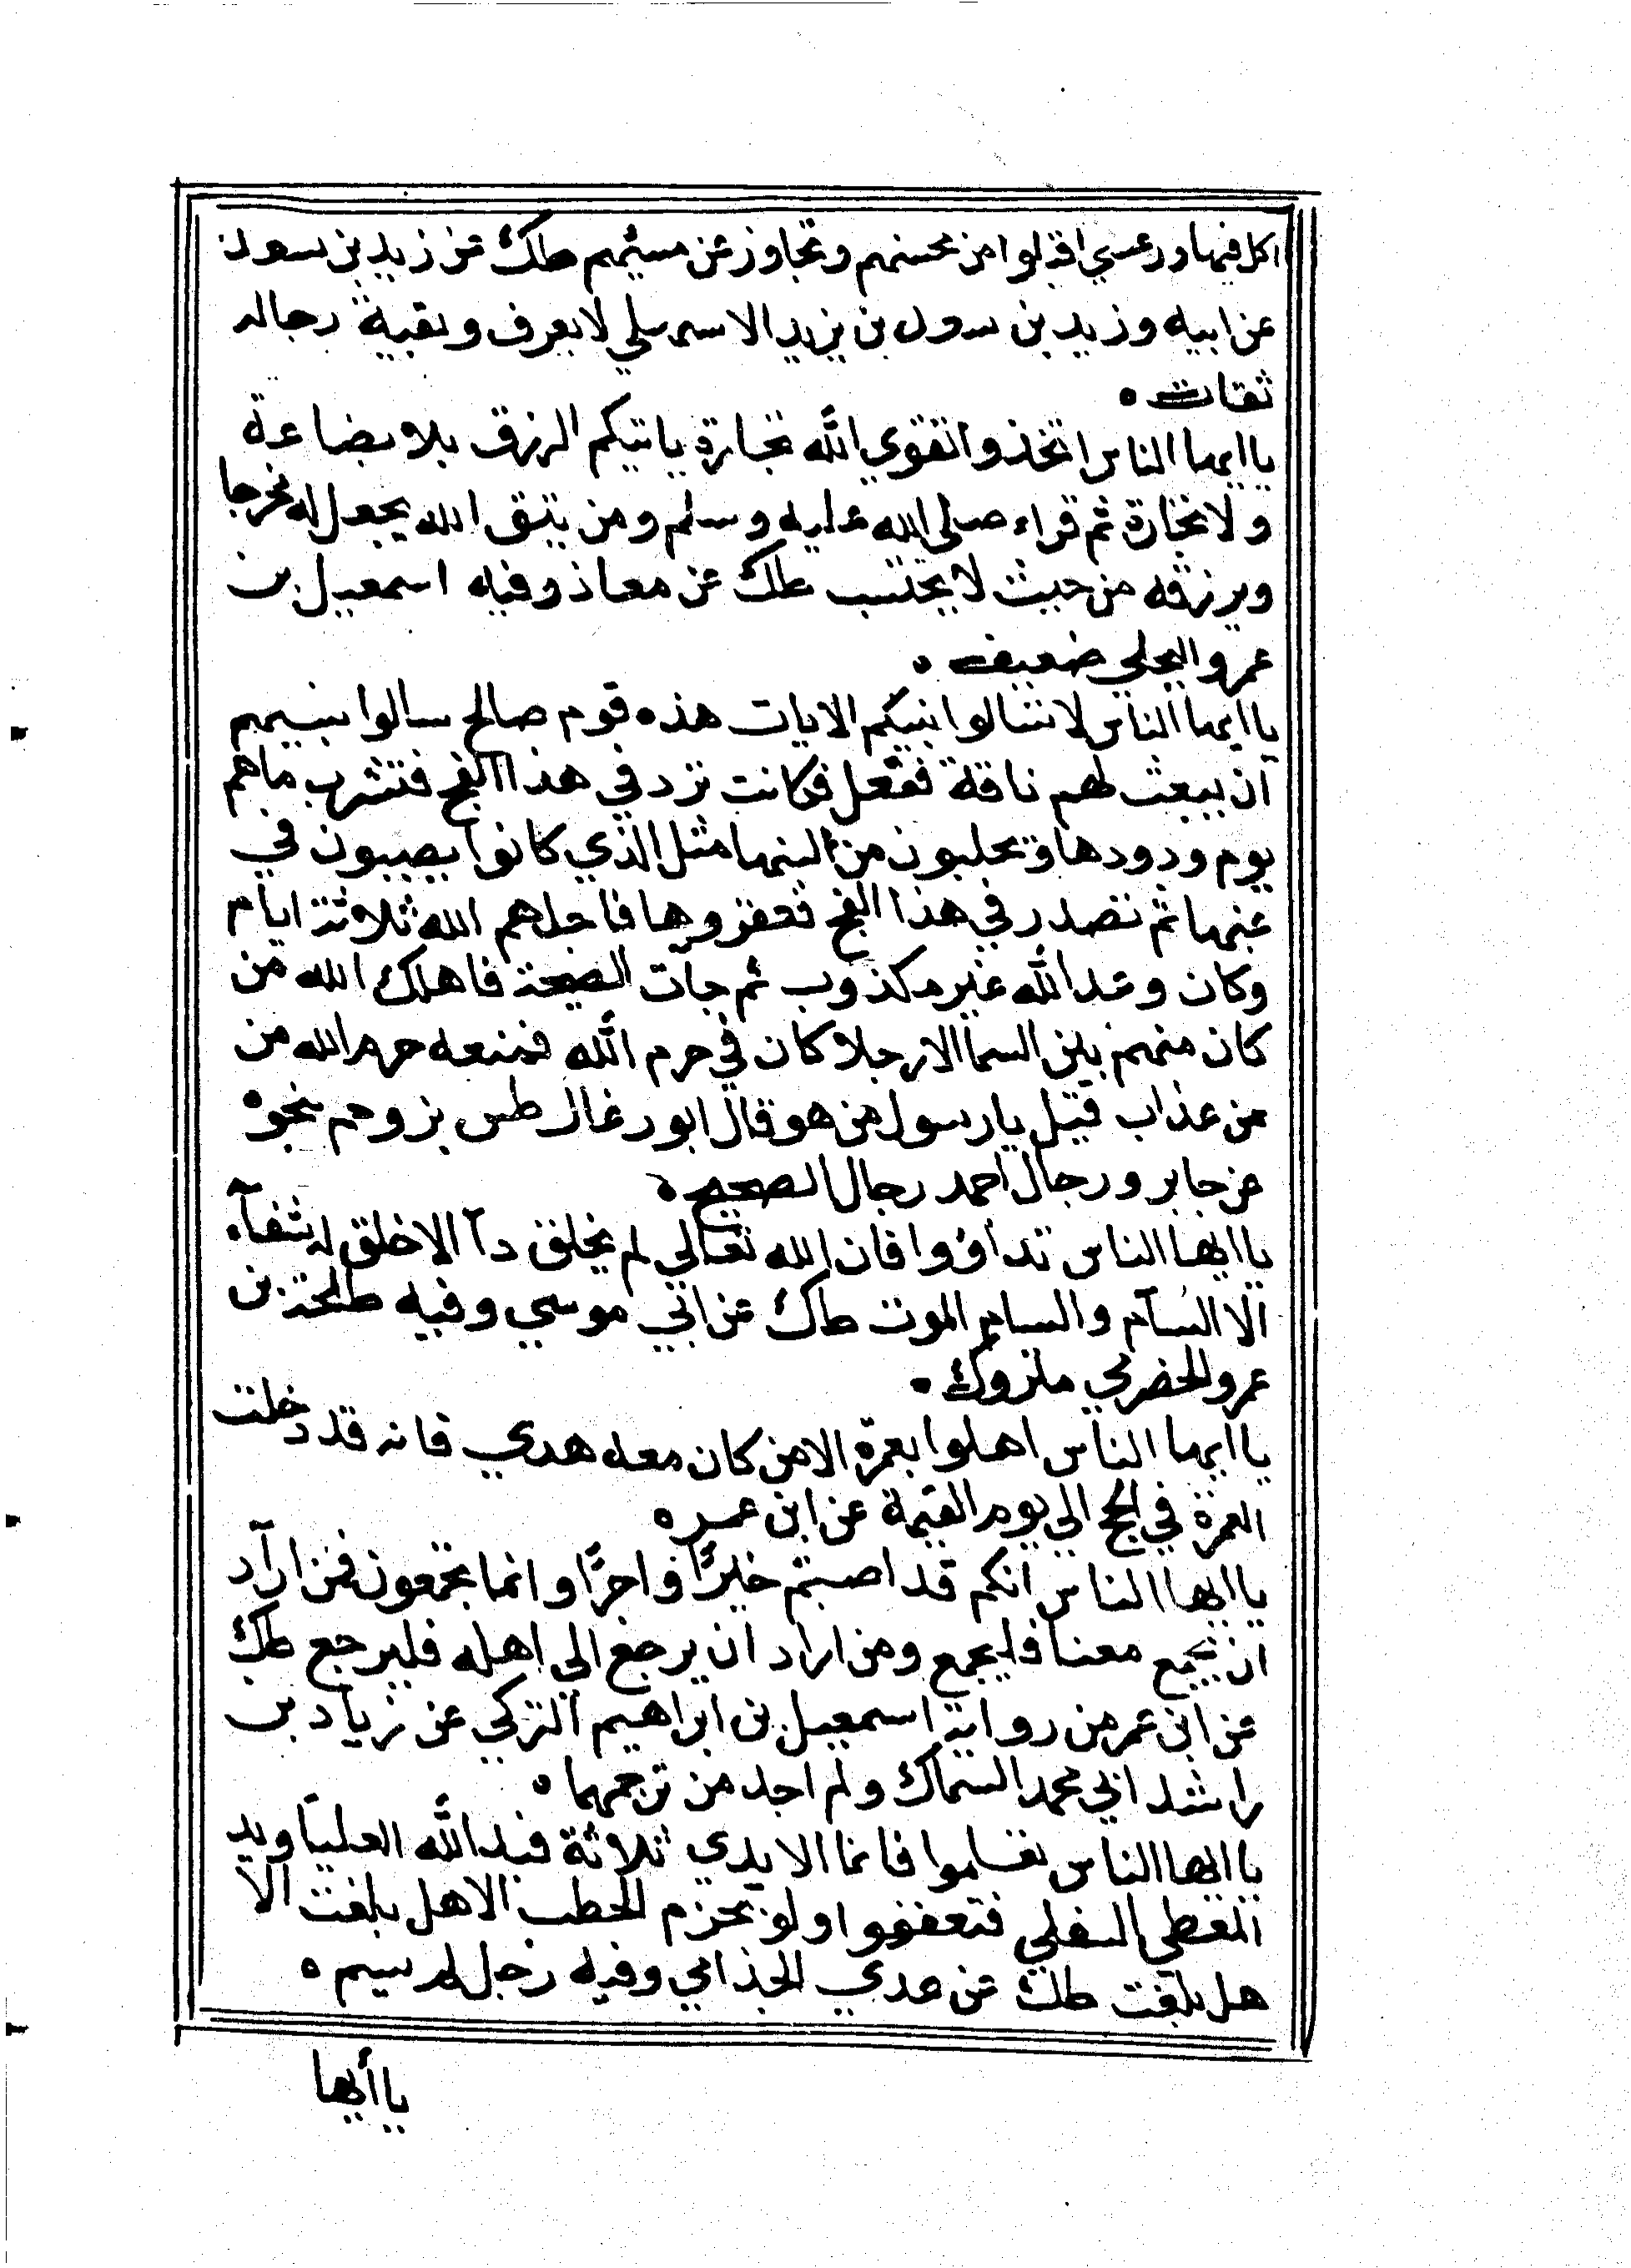 اكل فيها ورعسي اقبلوا من محسنهم وتجاوز عن مسيئهم طك عن زيد بن سعد
عن ابيه وزيد بن سعد بن يزيد الاسهلي لا يعرف وبقية رجاله
ثقات ه
يا ايها الناس اتخذوا تقوي الله تجارة ياتيكم الرزق بلا بضاعة
ولا تجارة ثم قراء صلى الله عليه وسلم ومن يتق الله يجعل له مخرجا
ويرزقه من حيث لا يحتسب طك عن معاذ وفيه اسمعيل بن
عمرو البجلي ضعيف ه
يا ايها الناس لا تسالوا نبيكم الايات هذه قوم صالح سالوا نبيهم
ان يبعث لهم ناقة ففعل فكانت ترد في هذا الفج فتشرب ماهم
يوم ورودها ويحلبون من لبنها مثل الذي كانوا يصيبون في
غبها ثم تصدر في هذا الفج فعقروها فاجلهم الله ثلاثة ايام
وكان وعد الله غير مكذوب ثم جآت الصيحة فاهلك الله من
كان منهم بين السما الا رجلا كان في حرم الله فمنعه حرم الله من
من عذاب قيل يا رسول من هو قال ابو رغال طس بز وحم نحوه
عن جابر ورجال احمد رجال الصحيح ه
يا ايها الناس تداووا فان الله تعالي لم يخلق دآ الا خلق له شفآء
الا السآم والسام الموت طك عن ابي موسي وفيه طلحة بن
عمرو الحضرمي متروك ه
يا ايها الناس اهلوا بعمرة الا من كان معه هدي فانه قد دخلت
العمرة في الحج الي يوم القيمة عن ابن عمر ه
يا ايها الناس انكم قد اصبتم خيرًا واجرًا وانما نجمعون فمن اراد
ان يجمع معنا فليجمع ومن اراد ان يرجع الي اهله فليرجع طك
عن ابن عمر من رواية اسمعيل بن ابراهيم التركي عن زياد بن
راشد ابي محمد السماك ولم اجد من ترجمهما ه
يا ايها الناس تعلموا فانما الايدي ثلاثة فيد الله العليا ويد
المعطي السفلي فتعففوا ولو بحزم الحطب الا هل بلغت الا
هل بلغت طك عن عدي الجذامي وفيه رجل لم يسم ه
يا أيها